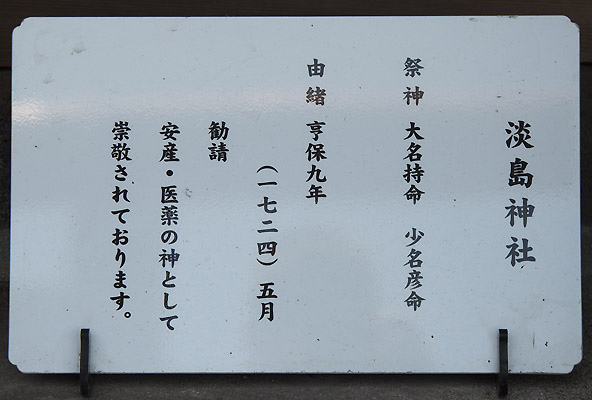 淡島神社
祭神 大名持命 少名彦命
由緒 亨保九年
(一七二四)五月
勧請
安産・医薬の神として
崇敬されております。